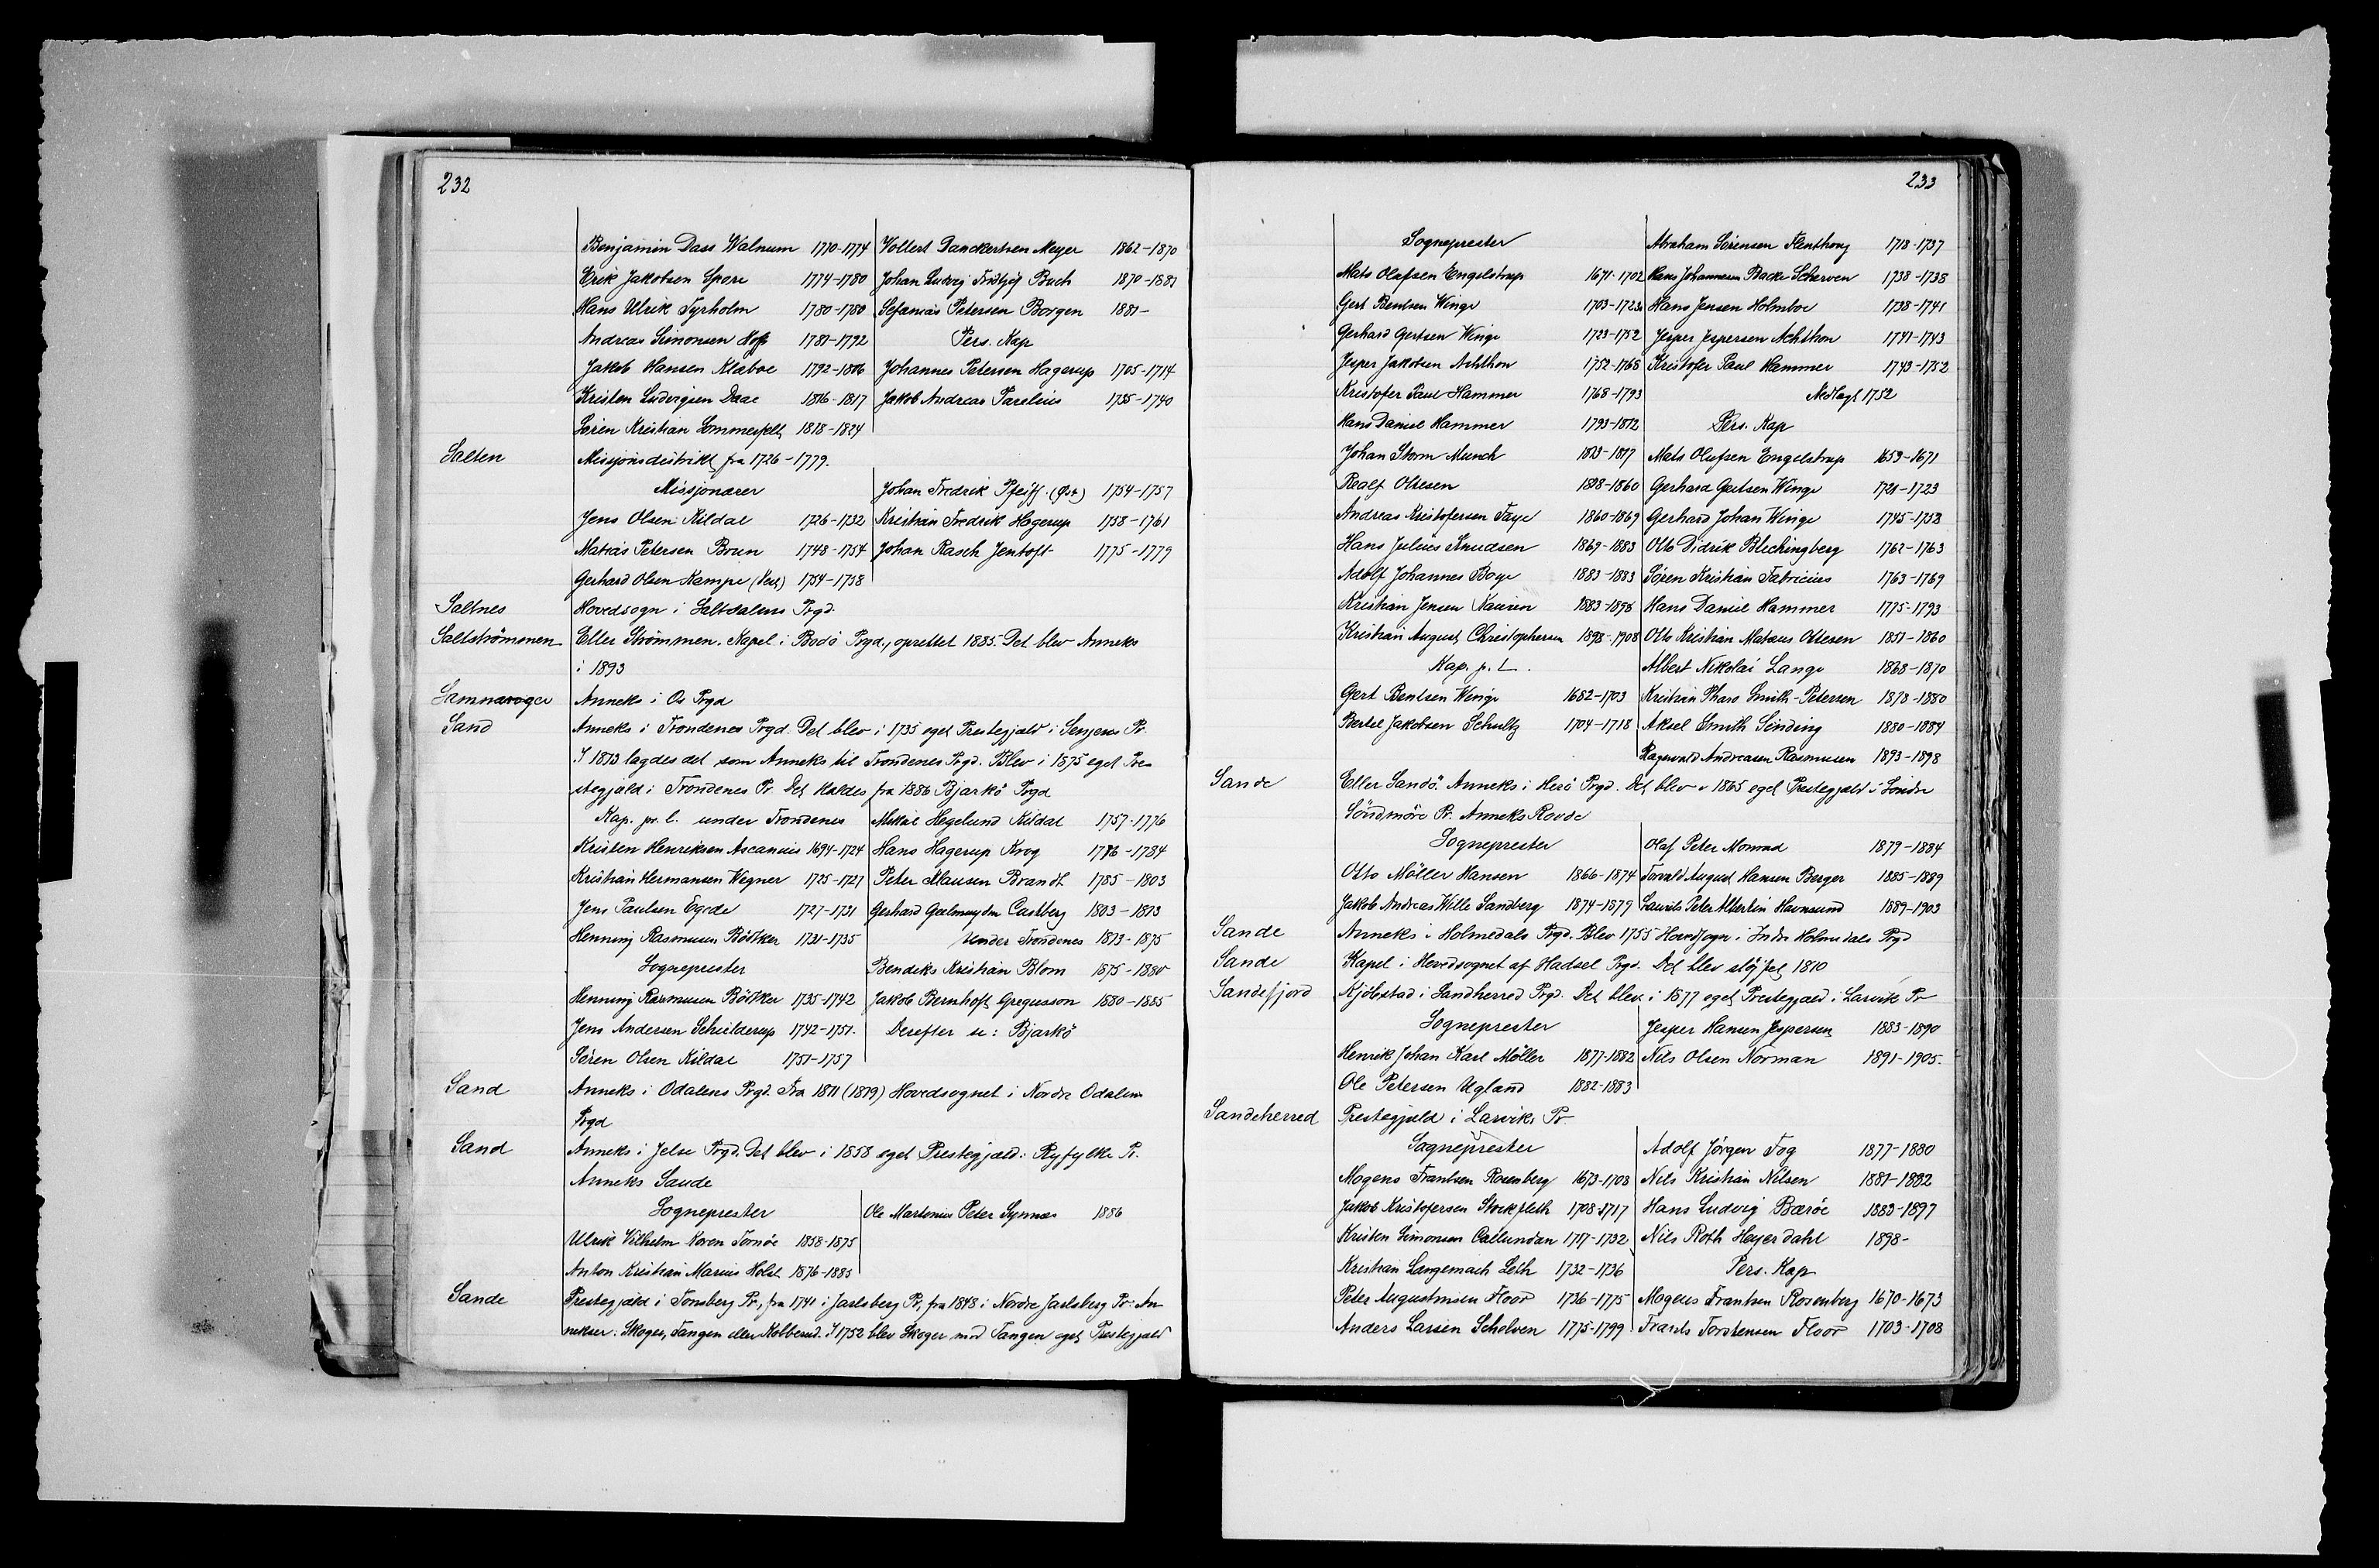 232
Benjamin Dass Walnum 1770-1774
Erik Jakobsen Spore 1774-1780
Hans Ulrik Tyrholm 1780-1780
Andreas Simonsen Hof 1781-1792
Jakob Hansen Klæboe 1792-1816
Kristen Ludvigsen Daae 1816-1817
Sören Kristian Sommerfelt 1818-1824
Vollert Danckertsen Meyer 1862-1870
Johan Ludvig Fridtjof Buch 1870-1881
Stefanias Petersen Borgen 1881-
Pers. Kap
Johannes Petersen Hagerup 1705-1714
Jakob Andreas Parelius 1735-1740
Salten Missjonsdistrikt fra 1726-1779.
Missjonærer
Jens Olsen Kildal 1726-1732
Matias Petersen Brun 1748-1754
Gerhard Olsen Kampe (Vest) 1754-1758
Johan Fredrik Pfeiff (Öst) 1754-1757
Kristian Fredrik Hagerup 1758-1761
Johan Rasch Jentoft 1775-1779
Saltnes Hovedsogn i Saltdalens Prgd.
Saltströmmen Eller Strömmen. Kapel i Bodö Prgd., oprettet 1885. Det blev Anneks
i 1893
Samnanger Anneks i Os Prgd
Sand Anneks i Trondenes Prgd. Det blev i 1735 eget Prestegjæld i Senjens Pr.
I 1813 lagdes det som Anneks til Trondenes Prgd. Blev i 1875 eget Pre-
stegjæld i Trondenes Pr. Det kaldes fra 1886 Bjarkö Prgd
Kap. pr. l. under Trondenes
Kristen Henriksen Ascanius 1694-1724
Kristian Hermansen Wegner 1725-1727
Jens Paulsen Egede 1727-1731
Henning Rasmusen Bödtker 1731-1735
Sogneprester
Henning Rasmusen Bödtker 1735-1742
Jens Andersen Schielderup 1742-1751.
Sören Olsen Kildal 1751-1757
Mikal Hegelund Kildal 1757-1776
Hans Hagerup Krog 1776-1784
Peter Clausen Brandt 1785-1803
Gerhard Castberg 1803-1813
Under Trondenes 1813-1875
Bendiks Kristian Blom 1875-1880
Jakob Bernhoft Gregusson 1880-1885
Derefter se: Bjarkö
Sand Anneks i Odalens Prgd. Fra 1811 (1819) Hovedsognet i Nordre Odalens
Prgd
Sand Anneks i Jelse Prgd. Det blev i 1858 eget Prestegjæld i Ryfylke Pr.
Anneks Saude
Sogneprester
Ulrik Vilhelm Koren Tornöe 1858-1875
Anton Kristian Marius Holst 1876-1885
Ole Martenius Peter Synnæs 1886
Sande Prestegjæld i Tönsberg Pr., fra 1741 i Jarlsberg Pr, fra 1848 i Nordre Jarlsberg Pr. An-
nekser: Skoger, Tangen eller Kobberud. I 1752 blev Skoger med Tangen eget Prestegjæld
233
Sogneprester
Mats Olufsen Engelstrup 1671-1702
Gert Bentsen Winge 1703-1723
Gerhard Gertsen Winge 1723-1752
Jesper Jakobsen Achthon 1752-1768
Kristofer Paul Hammer 1768-1793
Hans Daniel Hammer 1793-1812
Johan Storm Munch 1813-1817
Realf Ottesen 1818-1860
Andreas Kristofersen Faye 1860-1869
Hans Julius Knudsen 1869-1883
Adolf Johannes Boye 1883-1883
Kristian Jensen Kaurin 1883-1898
Kristian August Christophersen 1898-1908
Kap. p. L.
Gert Bentsen Winge 1652-1703
Bertel Jakobsen Schultz 1704-1718
Abraham Sörensen Flenthong 1718-1737
Hans Johannesen Backe Scherven 1738-1738
Hans Jensen Holmboe 1738-1741
Jesper Jespersen Achthon 1741-1743
Kristofer Paul Hammer 1743-1752
Nedlagt 1752
Pers. Kap
Mats Olufsen Engelstrup 1659-1671
Gerhard Gertsen Winge 1721-1723
Gerhard Johan Winge 1745-1752
Otto Didrik Blechingberg 1762-1763
Sören Kristian Fabricius 1763-1769
Hans Daniel Hammer 1775-1793
Otto Kristian Matæus Ottesen 1851-1860
Albert Nikolai Lange 1868-1870
Kristian Pharo Smith-Petersen 1878-1880
Aksel Smith Sinding 1880-1884
Ragnvald Andreasen Rasmusen 1893-1898
Sande Eller Sandö. Anneks i Herö Prgd. Det blev i 1865 eget Prestegjæld i Söndre
Söndmöre Pr. Anneks Rovde
Sogneprester
Otto Möller Hansen 1866-1874
Jakob Andreas Wille Sandberg 1874-1879
Olaf Peter Monrad 1879-1884
Torvald August Hansen Berger 1885-1889
Laurits Peter Albertin Havnsund 1889-1903
Sande Anneks i Holmedals Prgd. Blev 1755 Hovedsogn i Indre Holmedals Prgd
Sande Kapel i Hovedsognet af Hadsel Prgd. Det blev slöjfet 1810
Sandefjord Kjöbstad i Sandherred Prgd. Det blev i 1877 eget Prestegjæld i Larvik Pr
Sogneprester
Henrik Johan Karl Möller 1877-1882
Ole Petersen Ugland 1882-1883
Jesper Hansen Jespersen 1883-1890
Nils Olsen Norman 1891-1905.
Sandeherred Prestegjæld i Larviks Pr
Sogneprester
Mogens Frantsen Rosenberg 1673-1708
Jakob Kristofersen Stockfleth 1708-1717
Kristen Simonsen Callundan 1717-1732
Kristian Langemach Leth 1732-1736
Peter Augustinsen Floor 1736-1775
Anders Larsen Scholven 1775-1799
Adolf Jörgen Fog 1877-1880
Nils Kristian Nilsen 1881-1882
Hans Ludvig Bæröe 1883-1897
Nils Roth Heyerdahl 1898-
Pers. Kap
Mogens Frantsen Rosenberg 1670-1673
Frands Torstensen Floor 1703-1708